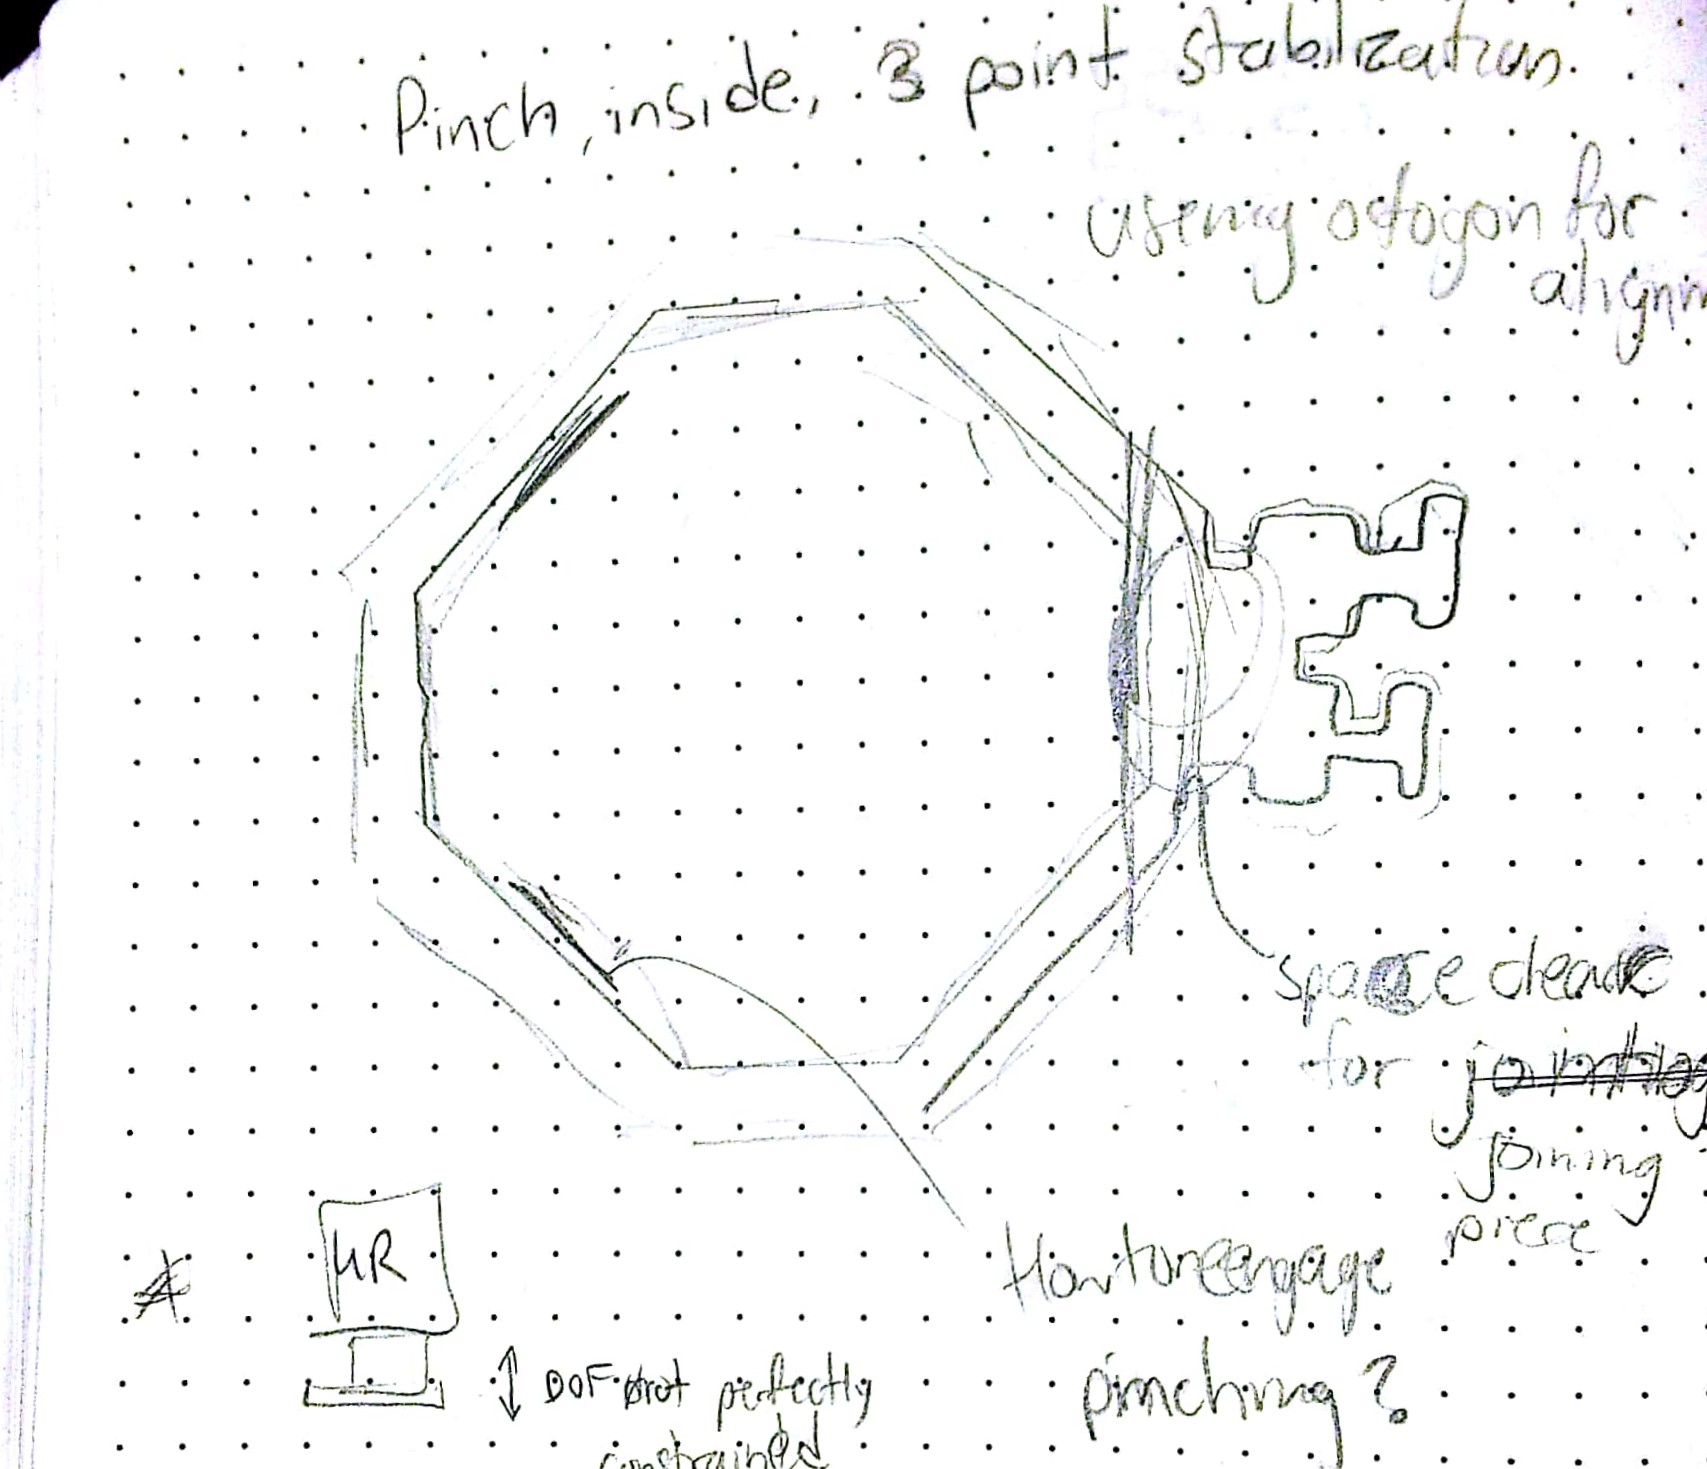 Pinch, inside, 3 point stabilization.
using octogon for
alignm
space clear
for jointing
joining
piece
How to reengage
pinching?
HR
DOF not perfectly
constrained